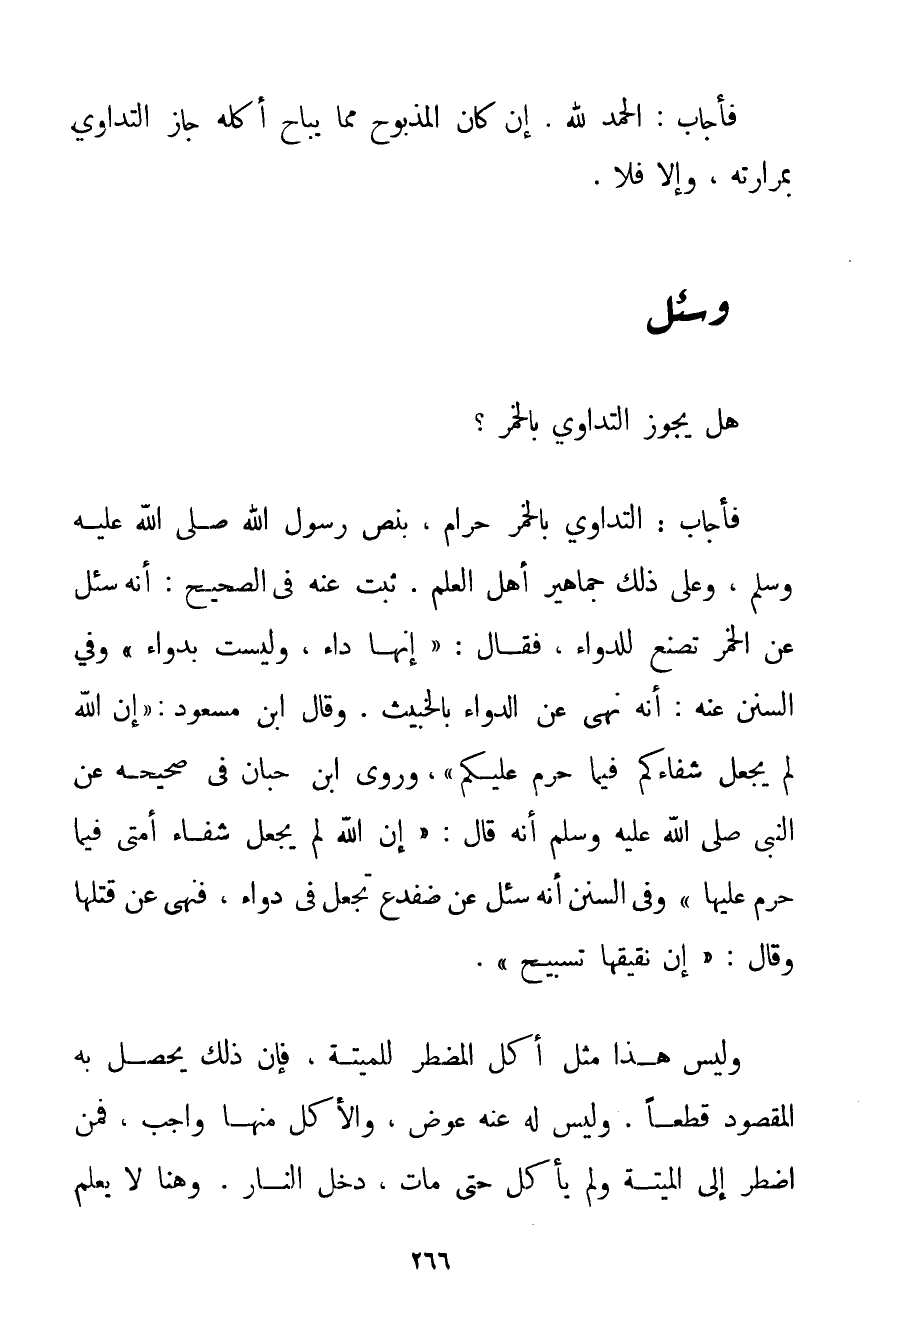 فأجاب : الحمد لله . إن كان المذبوح مما يباح أكله جاز التداوي
بمرارته ، وإلا فلا .
وسئل
هل يجوز التداوي بالخمر ؟
فأجاب : التداوي بالخمر حرام ، بنص رسول الله صلى الله عليه
وسلم ، وعلى ذلك جماهير أهل العلم . ثبت عنه فى الصحيح : أنه سئل
عن الخمر تصنع للدواء ، فقال : « إنها داء ، وليست بدواء » وفي
السنن عنه : أنه نهى عن الدواء بالخبيث . وقال ابن مسعود : «إن الله
لم يجعل شفاءكم فيما حرم عليكم» ، وروى ابن حبان فى صحيحه عن
النبى صلى الله عليه وسلم أنه قال : « إن الله لم يجعل شفاء أمتى فيما
حرم عليها » وفى السنن أنه سئل عن ضفدع تجعل فى دواء ، فنهى عن قتلها
وقال : « إن نقيقها تسبيح » .
وليس هذا مثل أكل المضطر للميتة ، فإن ذلك يحصل به
المقصود قطعاً . وليس له عنه عوض ، والأكل منها واجب ، فمن
اضطر إلى الميتة ولم يأكل حتى مات ، دخل النار . وهنا لا يعلم
٢٦٦